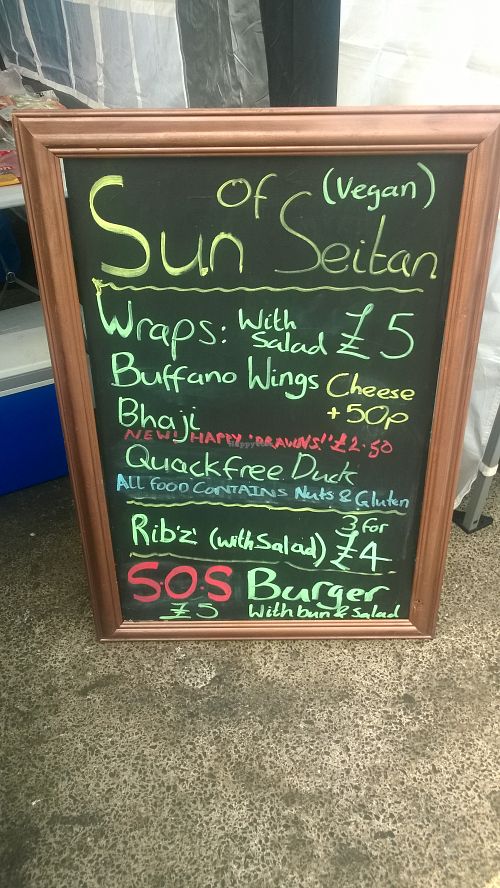 (Vegan)
Sun of Seitan
Wraps: With Salad £5
Buffano Wings Cheese +50p
Bhaji
NEW! HAPPY 'PRAWNS!' £2.50
Quackfree Duck
ALL FOOD CONTAINS Nuts & Gluten
Rib'z' (with Salad) 3 for £4
S.O.S Burger
£5 With bun & Salad